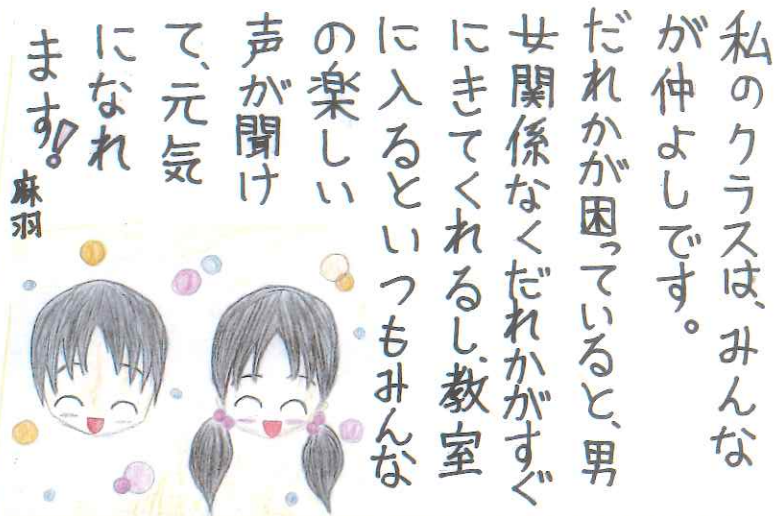 私のクラスは、みんな
が仲よしです。
だれかが困っていると、男
女関係なくだれかがすぐ
にきてくれるし、教室
に入るといつもみんな
の楽しい
声が聞け
て、元気
になれ
ます!
麻羽